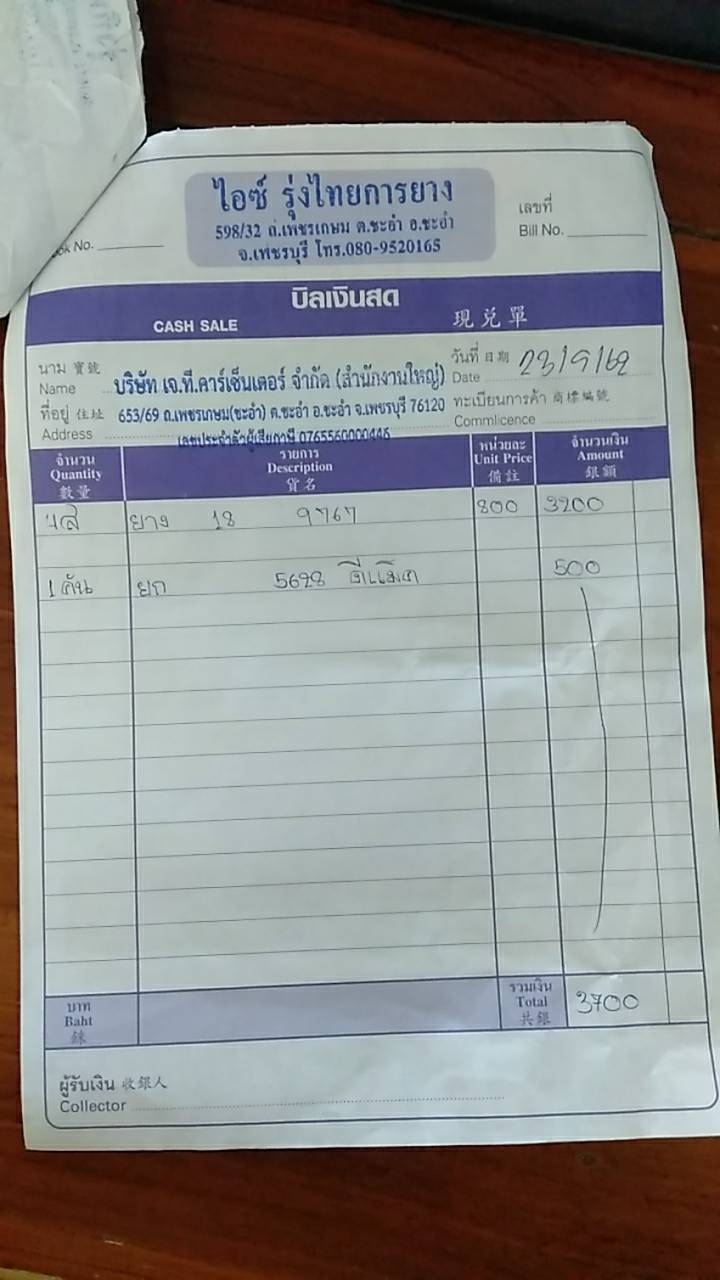 ไอซ์ รุ่งไทยการยาง
598/32 ถ.เพชรเกษม ต.ชะอำ อ.ชะอำ
จ.เพชรบุรี โทร.080-9520165
No.
เลขที่
Bill No.
บิลเงินสด
CASH SALE 現兑單
นาม 寶號
Name บริษัท เจ.ที.คาร์เซ็นเตอร์ จำกัด (สำนักงานใหญ่)
วันที่ 日期
Date 23/9/62
ที่อยู่ 住址
Address 653/69 ถ.เพชรเกษม(ชะอำ) ต.ชะอำ อ.ชะอำ จ.เพชรบุรี 76120
เลขประจำตัวผู้เสียภาษี 0765560000446
ทะเบียนการค้า 商標編號
Commlicence
จำนวน รายการ หน่วยละ จำนวนเงิน
Quantity Description Unit Price Amount
數量 貨名 備註 銀額
ยาง 18 9767 800 3200
1 คัน ยก 5628 500
บาท รวมเงิน
Baht Total 3700
銖 共銀
ผู้รับเงิน 收銀人
Collector